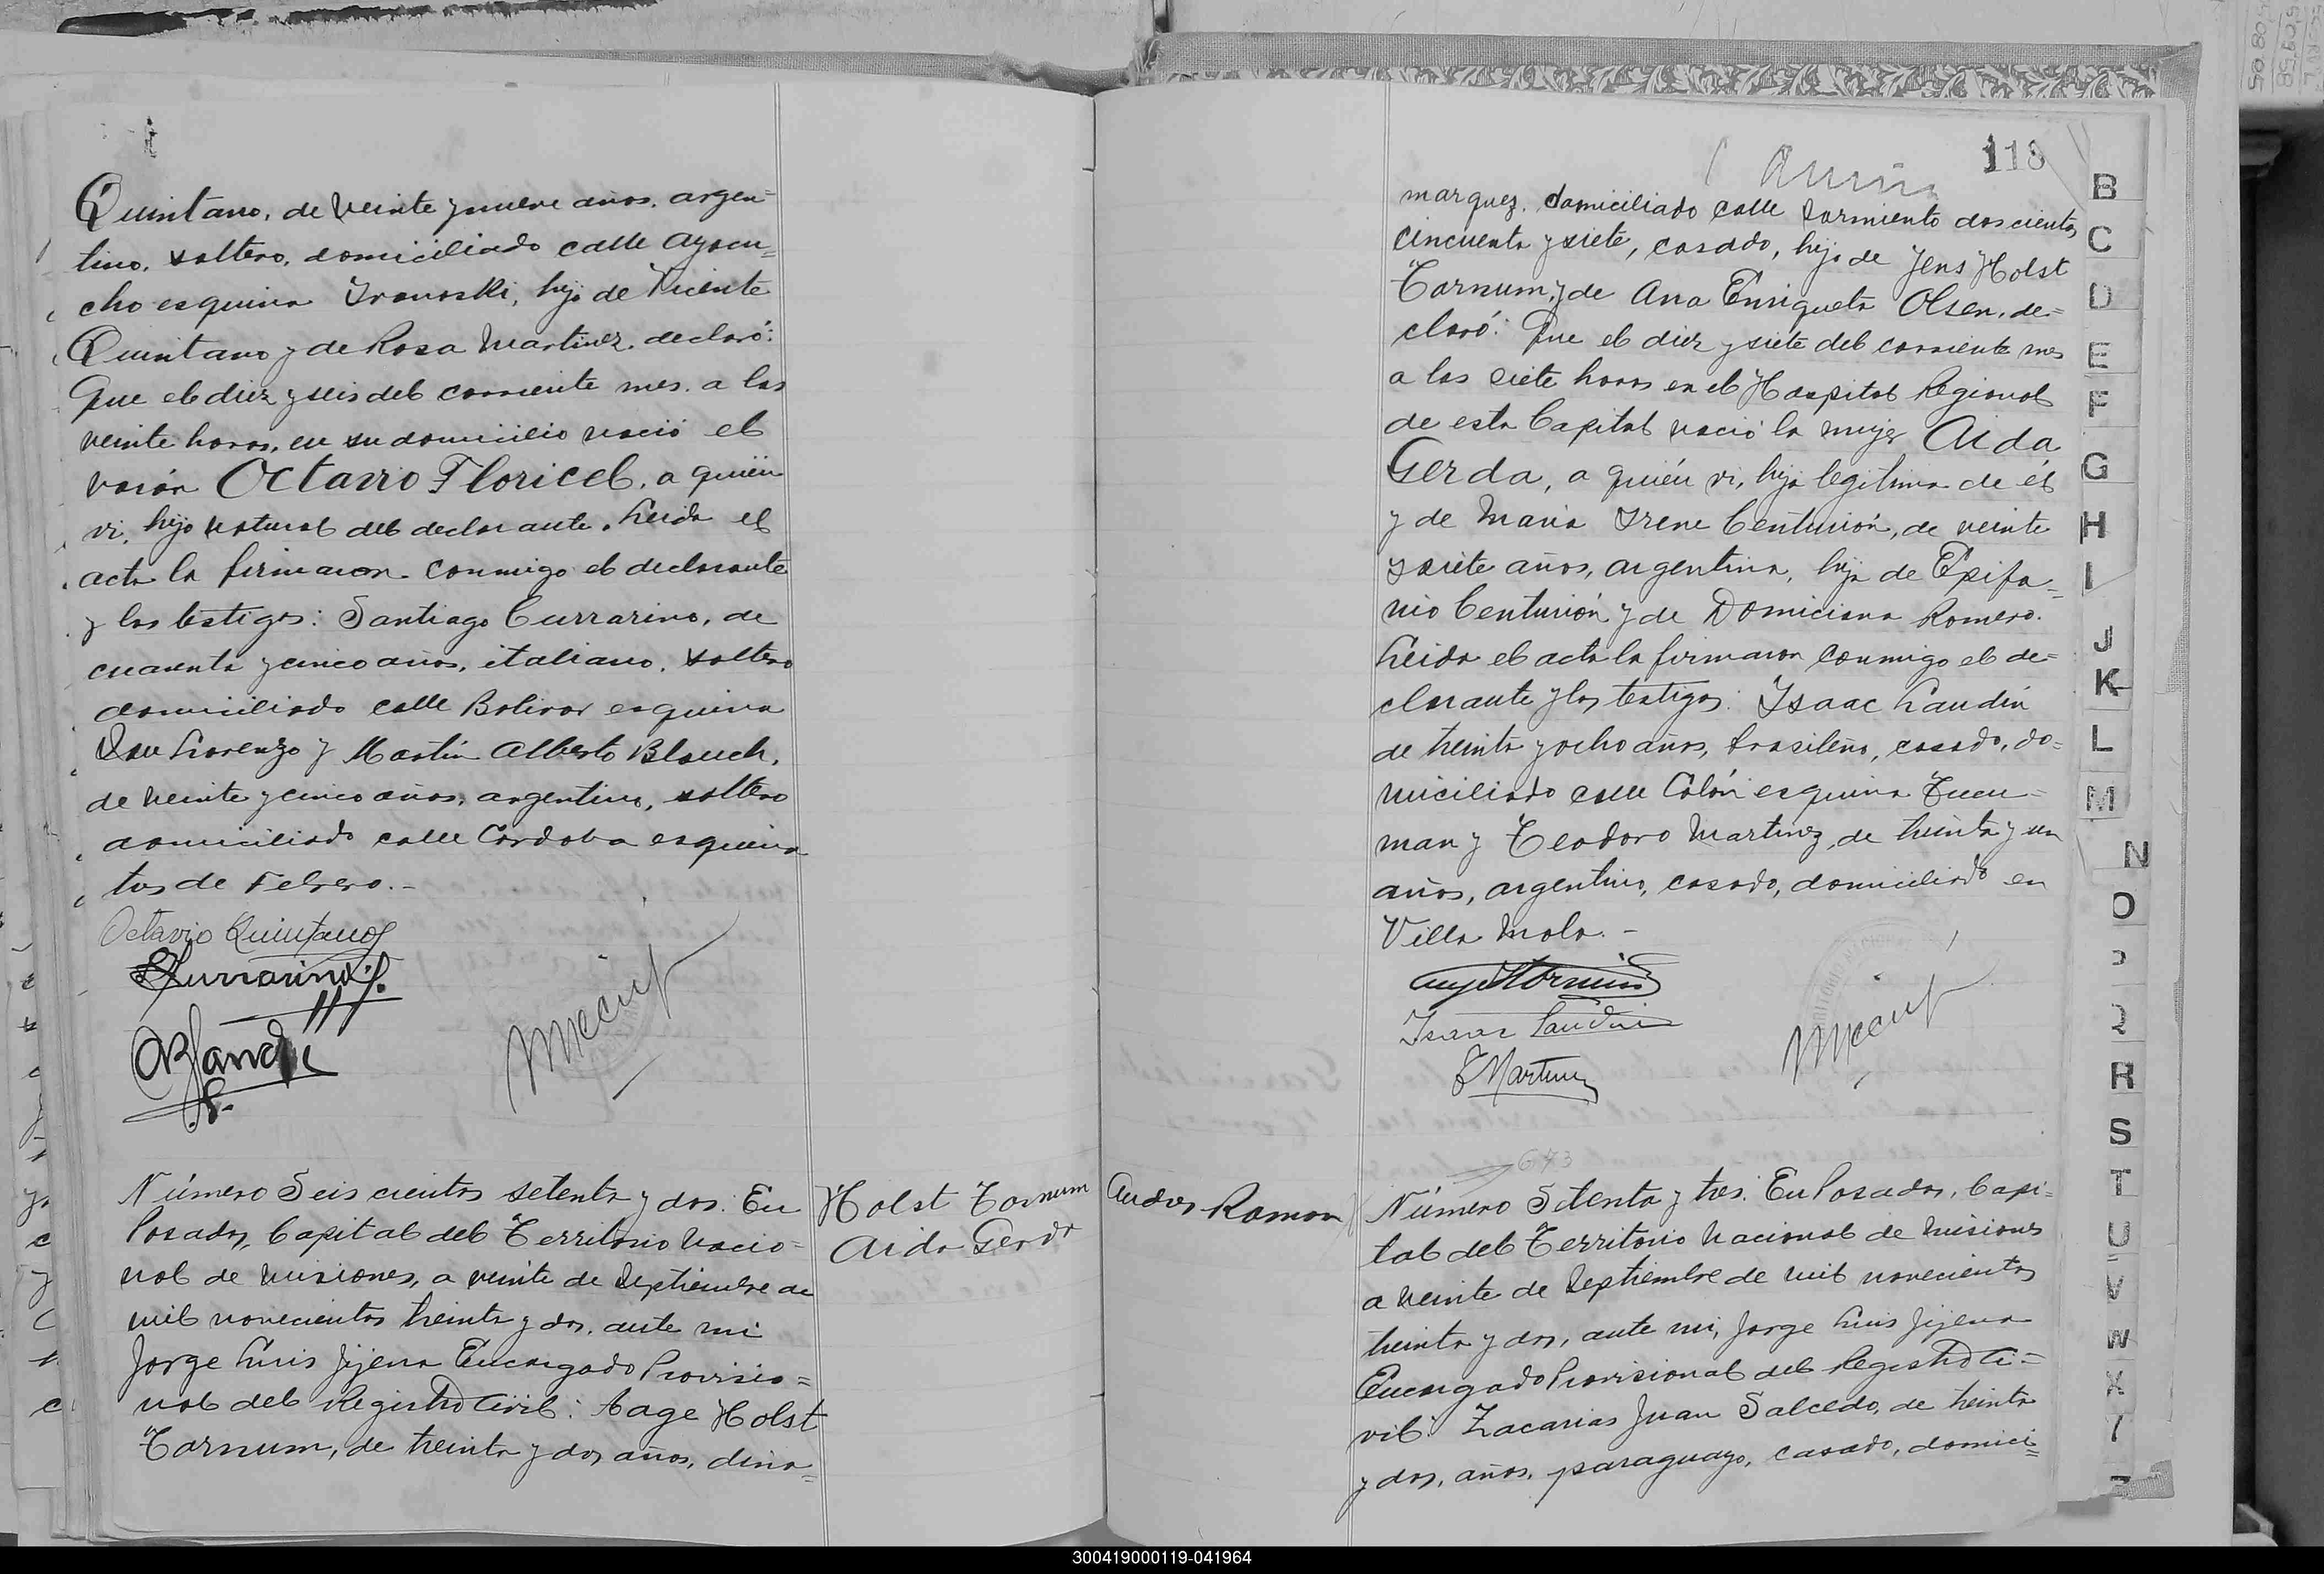 Quintano, de veinte y nueve años, argen=
tino, soltero, domiciliado calle Ayacu=
cho esquina Ivanoski, hijo de Vicente
Quintano y de Rosa Martinez, declaró:
Que el diez y seis del corriente mes, a las
veinte horas, en su domicilio nació el
varón Octavio Floricel, a quien
vi, hijo natural del declarante. Leida el
acta la firmaron conmigo el declarante
y los testigos: Santiago Currarino, de
cuarenta y cinco años, italiano, soltero
domiciliado calle Bolivar esquina
San Lorenzo y Martin Alberto
de veinte y cinco años, argentino, soltero
domiciliado calle Córdoba esquina
tres de Febrero.-
Octavio Quintano
Número Seis cientos setenta y dos: En
Posadas, Capital del Territorio Nacio=
nal de Misiones, a veinte de Septiembre de
mil novecientos treinta y dos, ante mi
Jorge Luis Jijena Encargado Provisio=
nal del Registro Civil: Aage Holst
Tornum, de treinta y dos años, dina=
Holst Tornum
Aida Gerda
118
marquez, domiciliado calle Sarmiento doscientos
cincuenta y siete, casado, hijo de Jens Holst
Tornum, y de Ana Enriqueta Olsen, de=
claró: Que el diez y siete del corriente mes
a las siete horas en el Hospital Regional
de esta Capital nació la mujer Aida
Gerda, a quién vi, hija legitima de él
y de Maria Irene Centurión, de veinte
y siete años, argentina, hija de Epifa=
nio Centurión y de Domiciana Romero.
Leida el acta la firmaron conmigo el de=
clarante y los testigos: Isaac Laudin
de treinta y ocho años, brasileño, casado, do=
miciliado calle Colón esquina Tucu=
man y Teodoro Martinez, de treinta y un
años, argentino, casado, domiciliado en
Villa Mola.-
Isaac Laudin
T Martinez
673
Ramon
Número Setenta y tres: En Posadas, Capi=
tal del Territorio Nacional de Misiones
a veinte de Septiembre de mil novecientos
treinta y dos, ante mi, Jorge Luis Jijena
Encargado Provisional del Registro Ci=
vil: Zacarias Juan Salcedo, de treinta
y dos, años, paraguayo, casado, domici=
B
C
D
E
F
G
H
I
J
K
L
M
N
O
R
S
T
U
V
W
X
300419000119-041964